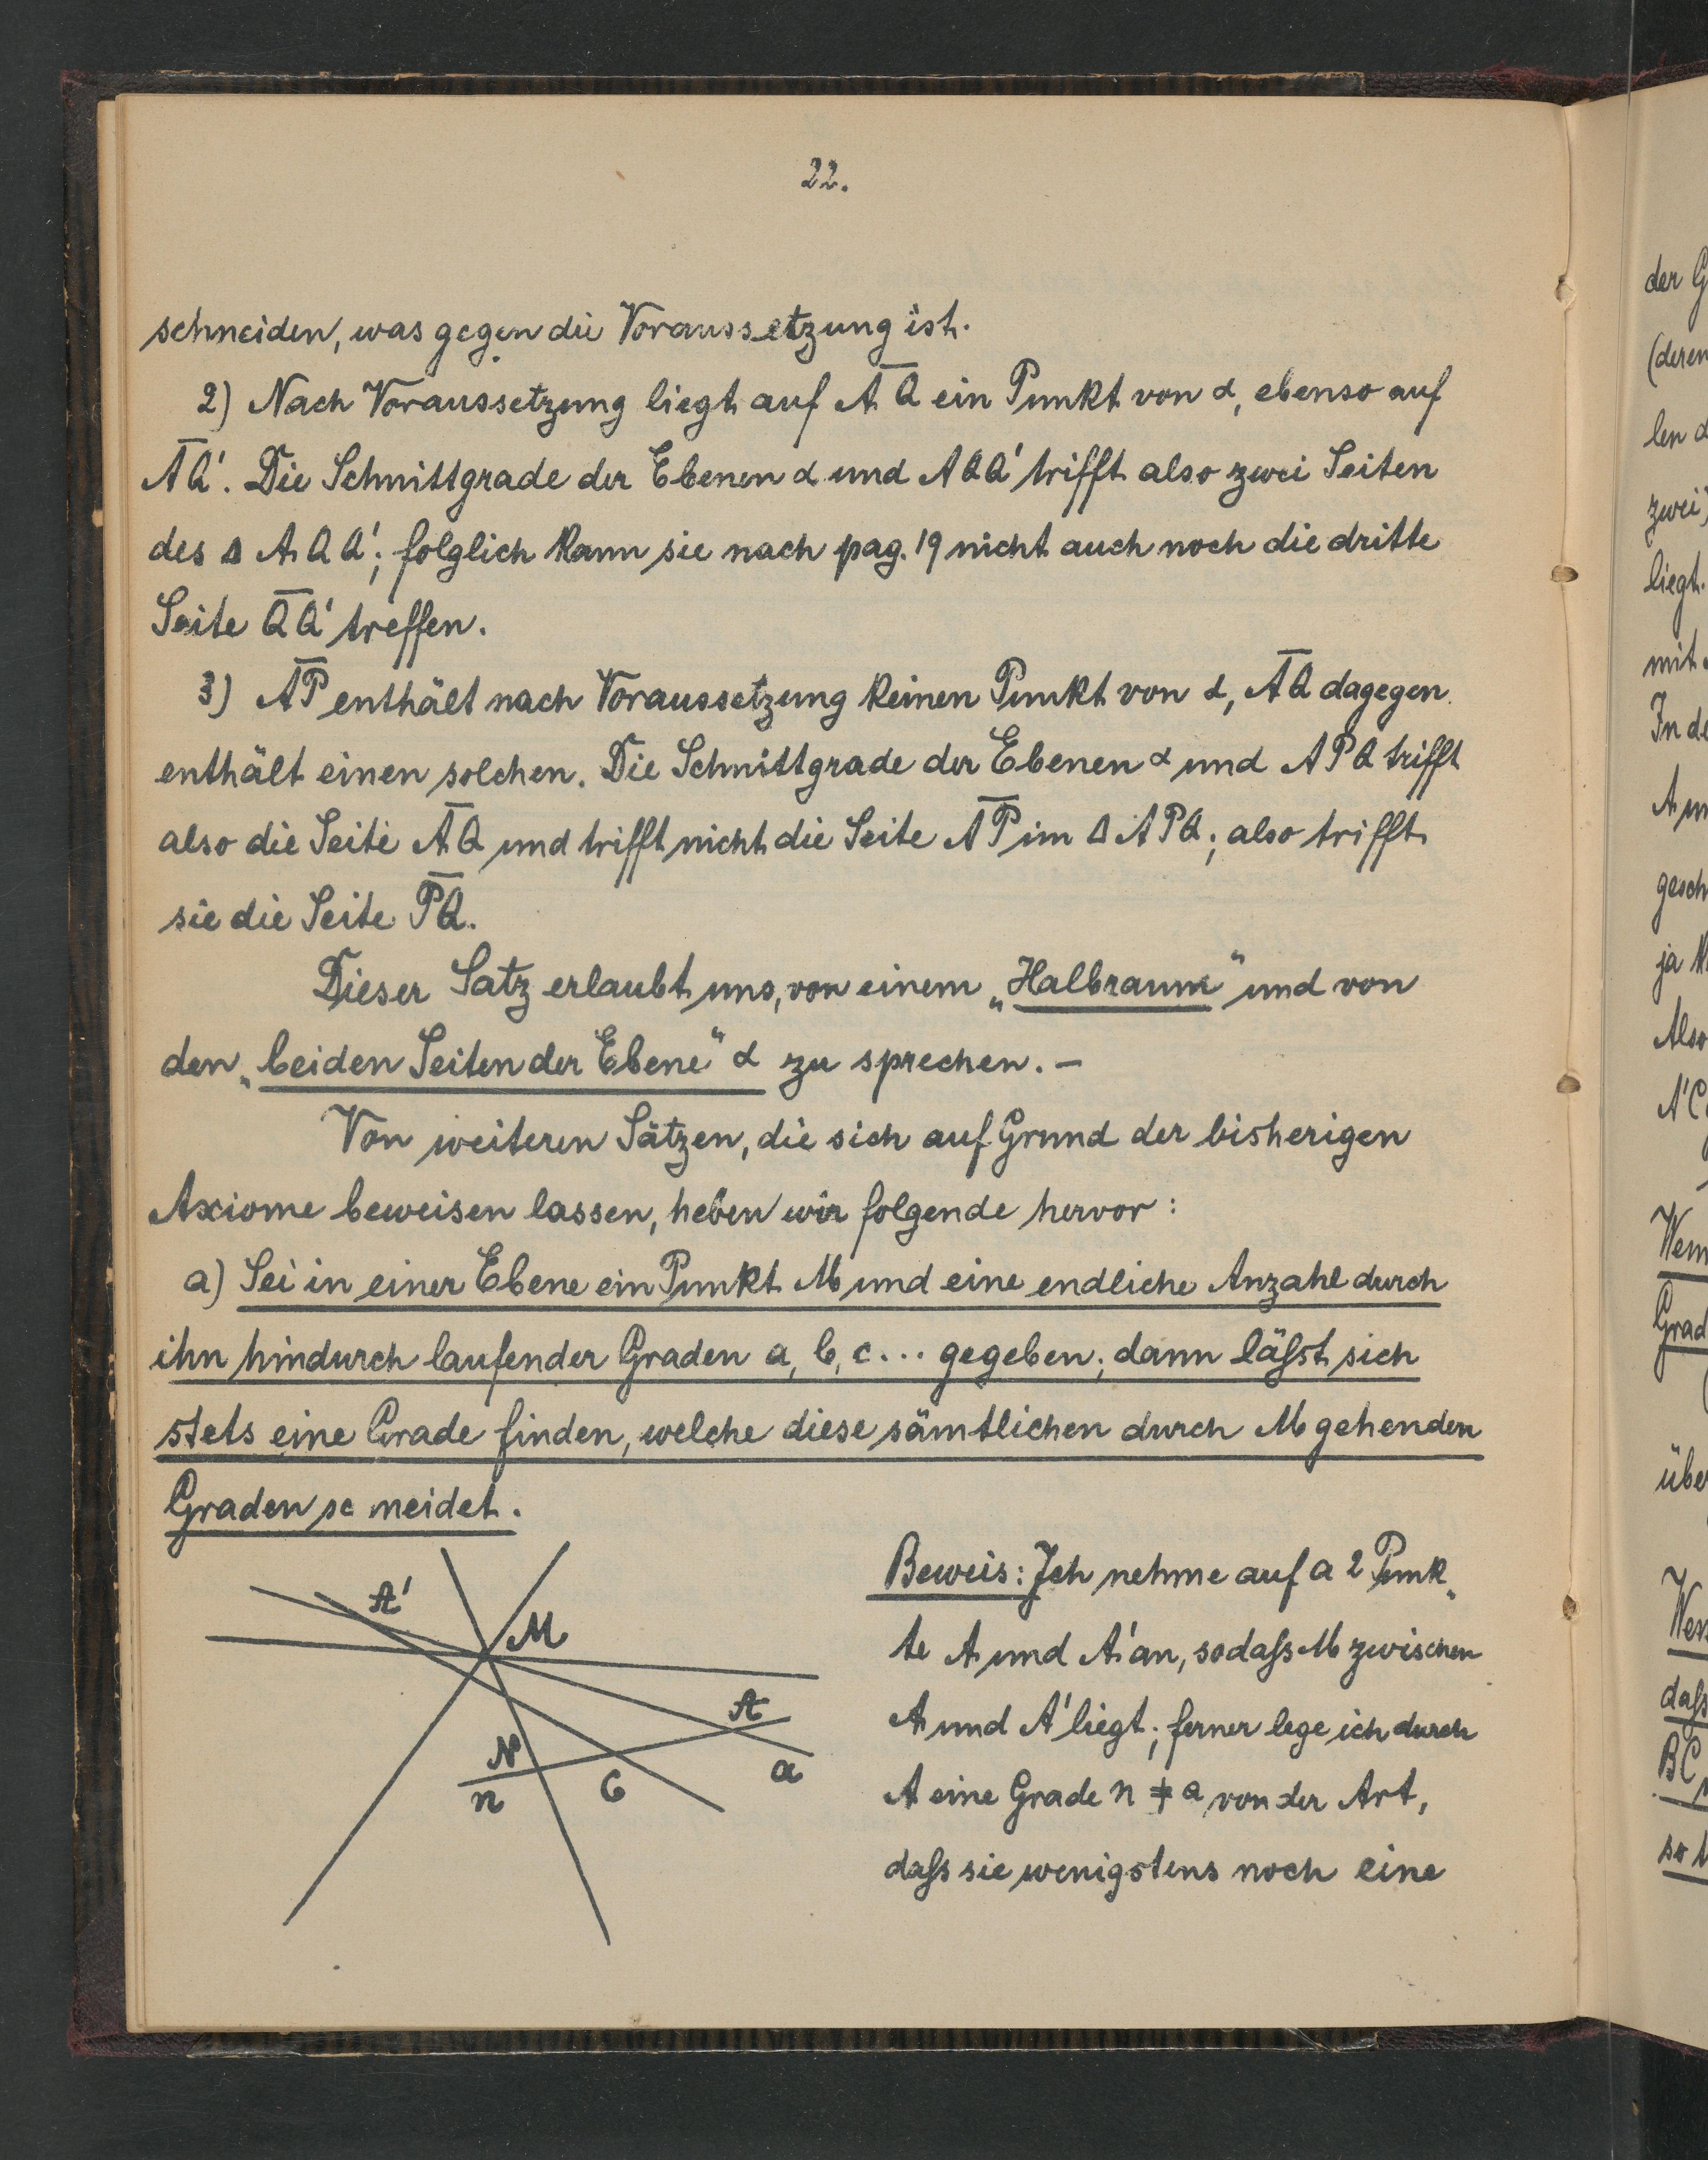 22.
schneiden, was gegen die Voraussetzung ist.
2) Nach Voraussetzung liegt auf A̅Q̅ ein Punkt von α, ebenso auf
A̅Q̅'. Die Schnittgrade der Ebenen α und AQQ' trifft also zwei Seiten
des Δ AQQ'; folglich kann sie nach pag. 19 nicht auch noch die dritte
Seite Q̅Q̅' treffen.
3) A̅P̅ enthält nach Voraussetzung keinen Punkt von α, A̅Q̅ dagegen
enthält einen solchen. Die Schnittgrade der Ebenen α und APQ trifft
also die Seite A̅Q̅ und trifft nicht die Seite A̅P̅ im Δ APQ; also trifft
sie die Seite P̅Q̅.
Dieser Satz erlaubt uns, von einem „Halbraum" und von
den „beiden Seiten der Ebene" α zu sprechen. –
Von weiteren Sätzen, die sich auf Grund der bisherigen
Axiome beweisen lassen, heben wir folgende hervor:
a) Sei in einer Ebene ein Punkt M und eine endliche Anzahl durch
ihn hindurch laufender Graden a, b, c... gegeben; dann läßt sich
stets eine Grade finden, welche diese sämtlichen durch M gehenden
Graden sc neidet.
A'
M
A
N
a
n
C
Beweis: Ich nehme auf a 2 Punk„
te A und A' an, sodaß M zwischen
A und A' liegt; ferner lege ich durch
A eine Grade n ≠ a von der Art,
daß sie wenigstens noch eine
der G
(deren
len d
zwei)
liegt.
mit
In de
A un
gesch
ja
Also
A'C
Wenn
Grad
übe
Wen
daß
BC
so